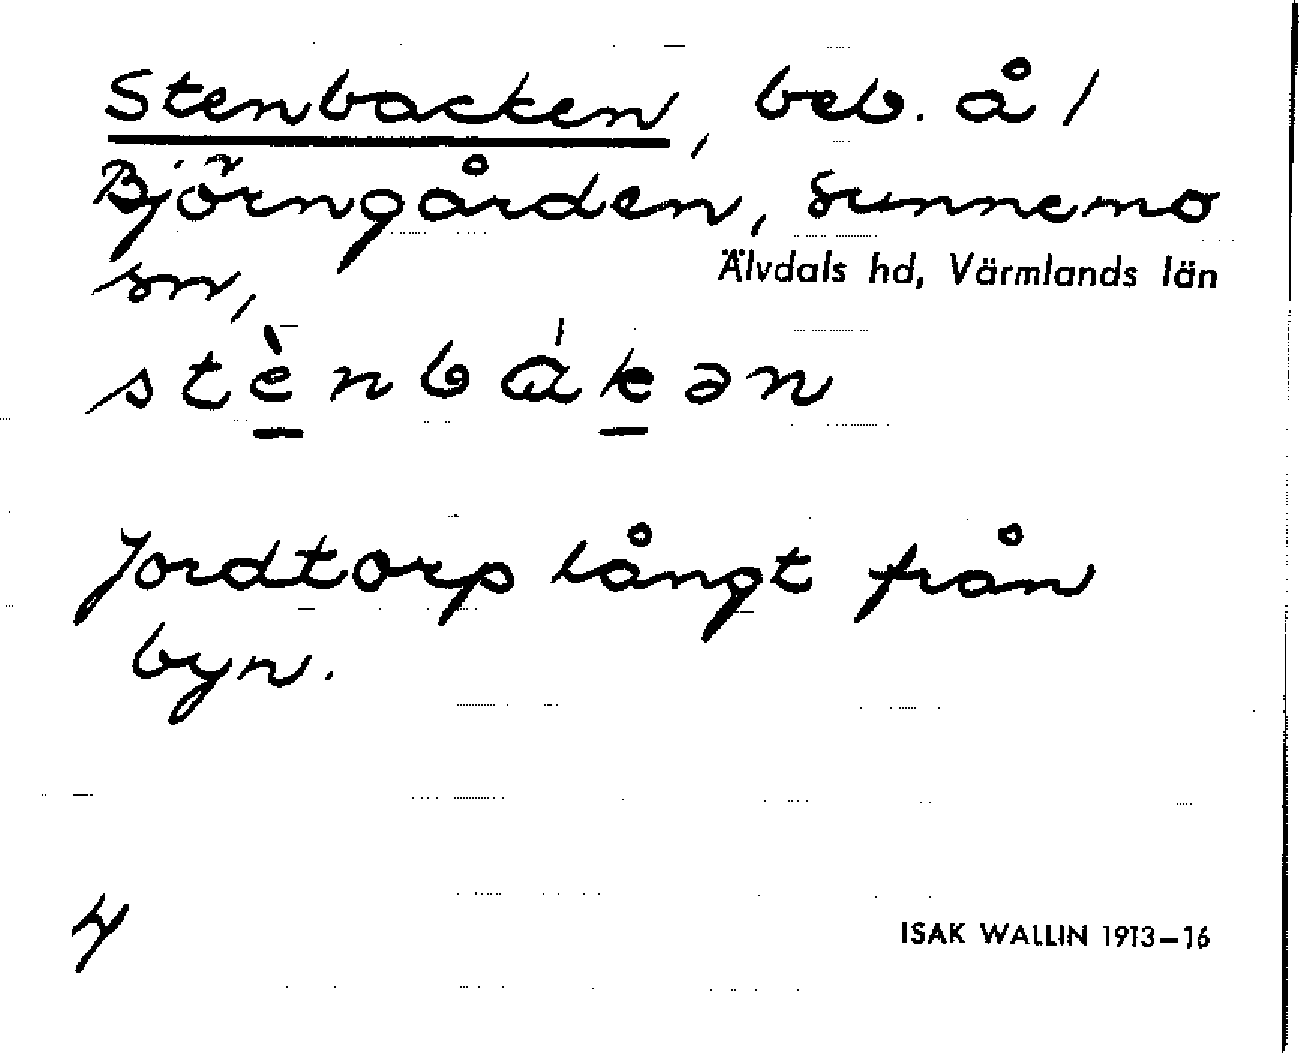 Stenbacken, beb. å /
Björngården, Sunnemo
sn, Älvdals hd, Värmlands län
stè̠nbák̠ən
Jordtorp långt från
byn.
4
ISAK WALLIN 1913–16